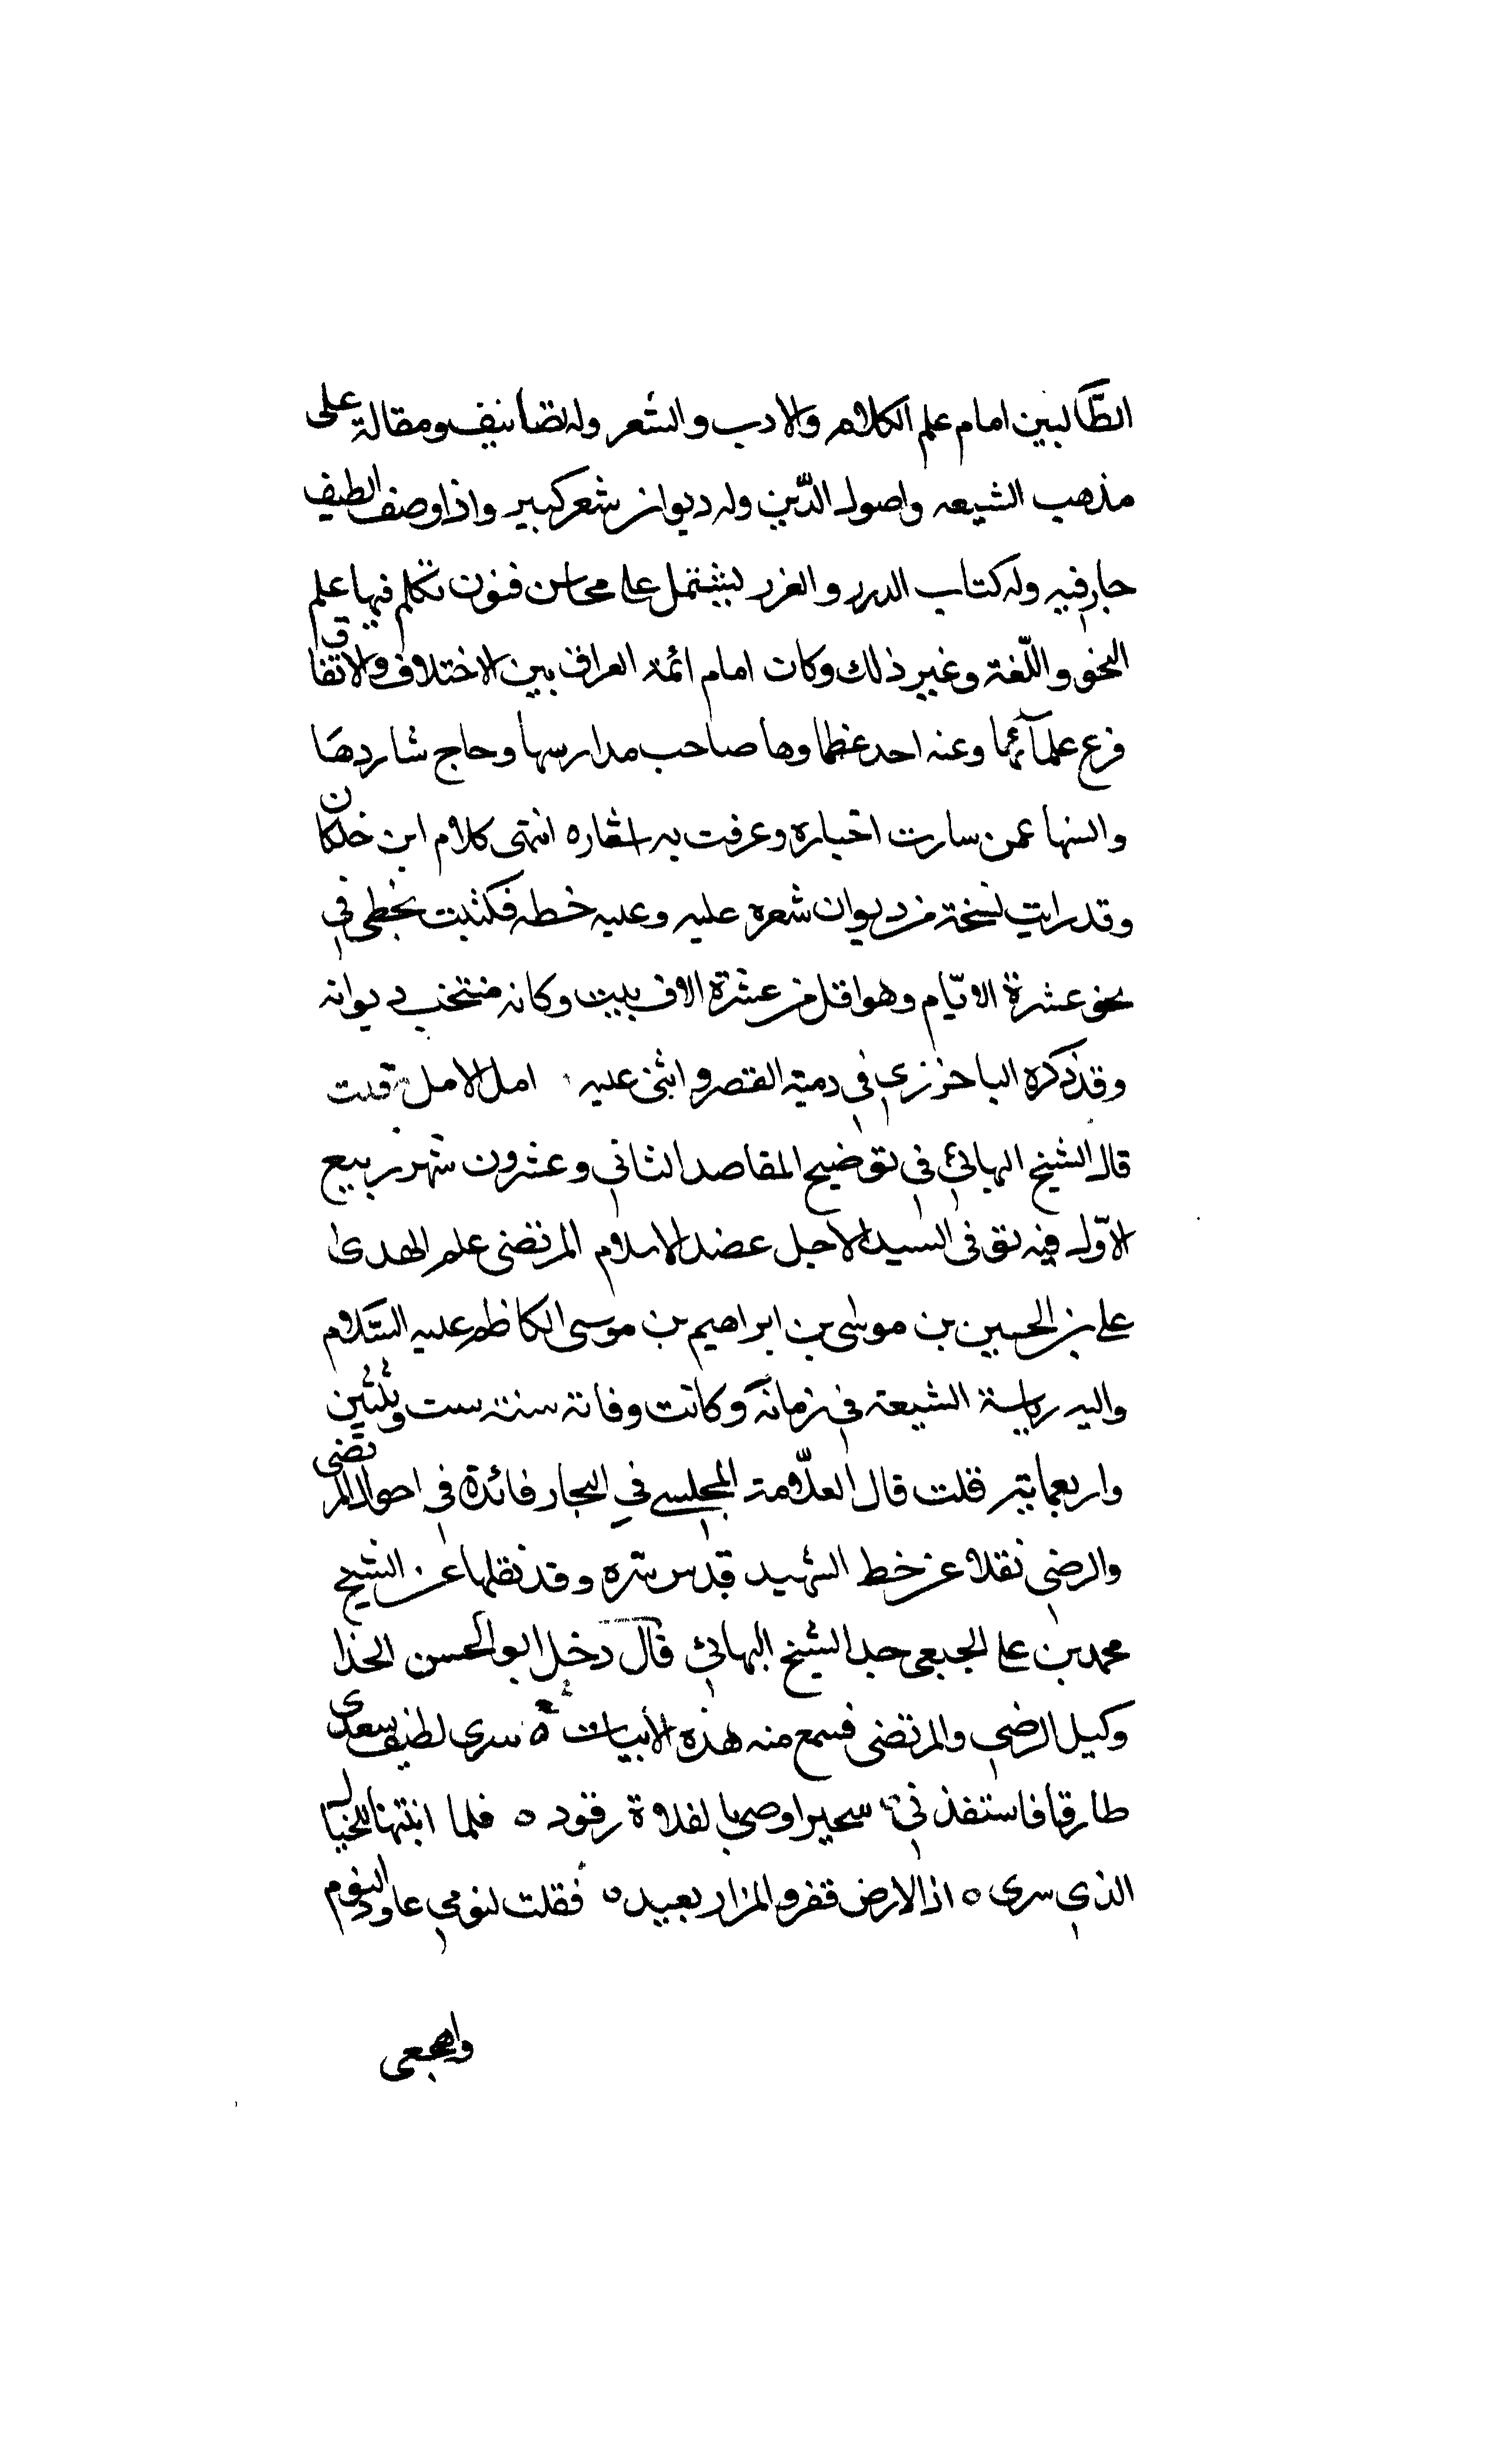 الطّالبين امام علم الكلام والادب والشعر وله تصانيف ومقالة على
مذهب الشيعه واصول الدّين وله ديوان شعر كبير واذا وصف الطيف
جار فيه وله كتاب الدرر والغرر ليشتمل على محاسن فنون تكلم فيها علم
النحو واللّغة وغير ذلك وكان امام ائمة العراق بين الاختلاف والاتفاق
فزع علمآئها وعنه احد عظماوها صاحب مدارسها وحاج شاردها
وانسها عمن سارت اخباره وعرفت به اشعاره انتهى كلام ابن خلكان
وقد رايت نسخة من ديوان شعره عليه وعليه خطه فكتبت بخطى في
نحو عشرة الايّام وهو اقل من عشرة الاف بيت وكانه منتخب ديوانه
وقد ذكره الباخرزي في دمية القصر واثنى عليه امل الامل قلت
قال الشيخ البهائي في توضيح المقاصد الثاني وعشرون شهر ربيع
الاوّل فيه توفى السيد الاجل عضد الاسلام المرتضى علم الهدى
على بن الحسين بن موسى بن ابراهيم بن موسى الكاظم عليه السّلام
واليه رياسة الشيعة في زمانه وكانت وفاته سنة ست وثلثين
واربعماية قلت قال العلّامة المجلسي في البحار فائدة في احوال المرتضى
والرضي نقلا عن خط الشهيد قدس سره وقد نقلها عن الشيخ
محمد بن على الجبعى جد الشيخ البهائي قال دخل ابو الحسن الحذا
وكيل الرضي والمرتضى فسمع منه هذه الأبيات ه سرى لطيف سعدى
طارقا فاستفذني سحيرا وصحبا لفلاة رقود ه فلما انتبهنا للخيال
الذي سرى ه اذ الارض قفر والمزار بعيد ه فقلت لنومي عاود النوم
واهجعى